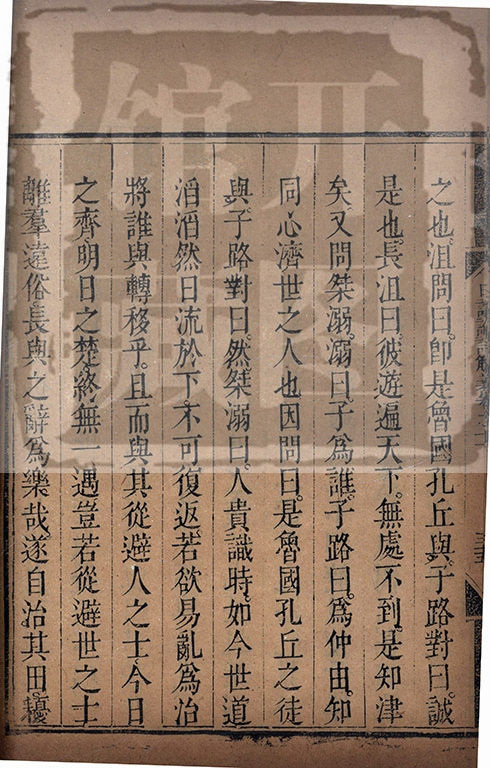 之也。沮問曰。卽是魯國孔丘與。子路對曰誠
是也。長沮曰。彼遊遍天下。無處不到。是知津
矣。又問桀溺。溺曰。子爲誰。子路曰。爲仲由。知
同心濟世之人也。因問曰。是魯國孔丘之徒
與。子路對曰。然。桀溺曰。人貴識時。如今世道
滔滔然日流於下。不可復返。若欲易亂爲治。
將誰與轉移乎。且而與其從避人之士。今日
之齊。明日之楚。終無一遇。豈若從避世之士
離羣遠俗。長與之辭爲樂哉。遂自治其田。耰